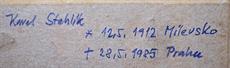 Karel Stehlík
* 12.5. 1912 Milevsko
† 28.5. 1985 Praha